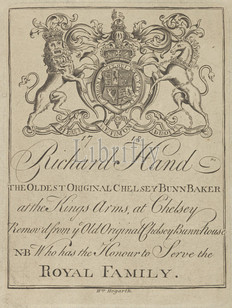 17 18
Richard Hand
THE OLDEST ORIGINAL CHELSEY BUNN BAKER
at the Kings Arms, at Chelsey
Remov'd from ye Old Original Chelsey Bunn House
NB Who has the Honour to Serve the
ROYAL FAMILY.
Wm Hogarth.